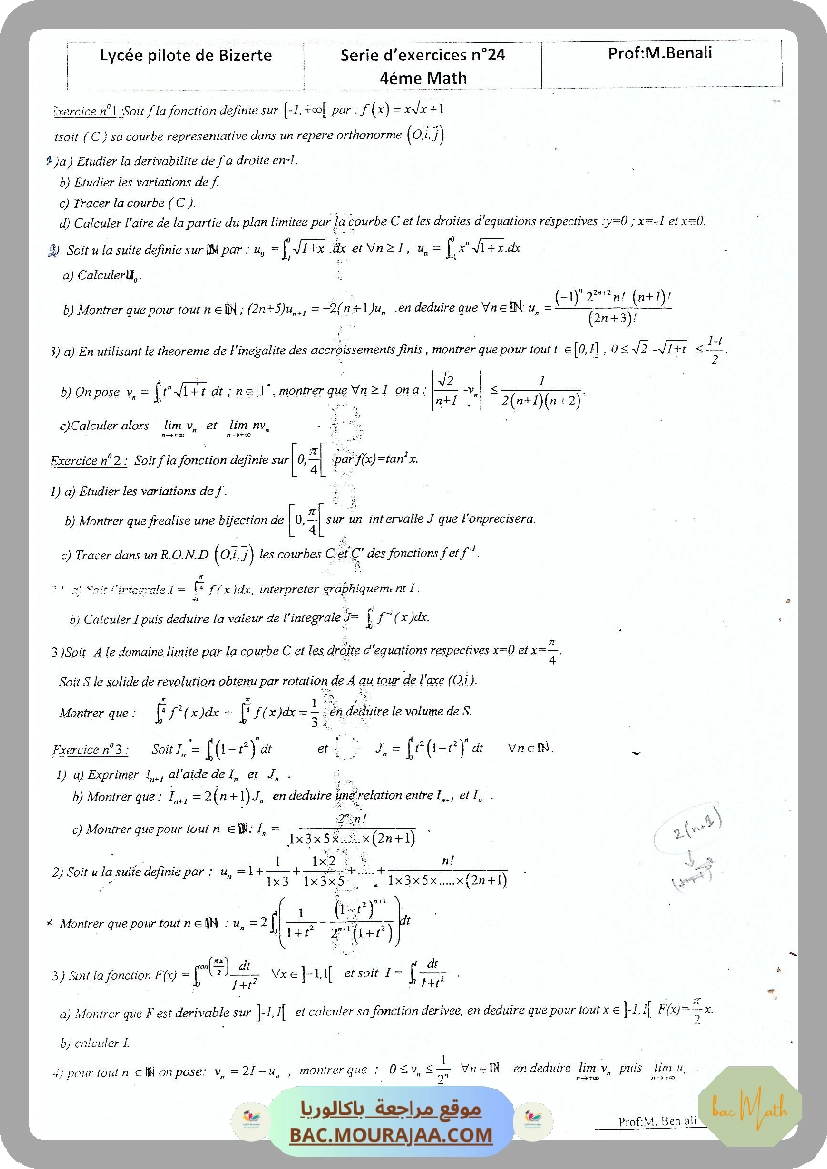 Lycée pilote de Bizerte
Serie d'exercices n°24
4éme Math
Prof:M.Benali
Exercice n°1 :Soit f la fonction definie sur [-1, +∞[ par : f(x) = x√x+1
tsoit ( C ) sa courbe representative dans un repere orthonorme (O,i,j)
1)a) Etudier la derivabilite de f a droite en-1.
b) Etudier les variations de f.
c) Tracer la courbe ( C ).
d) Calculer l'aire de la partie du plan limitee par la courbe C et les droites d'equations respectives :y=0 ; x=-1 et x=0.
2) Soit u la suite definie sur IN par : u₀ = ∫₋₁⁰ √1+x .dx et ∀n ≥ 1 , uₙ = ∫₋₁⁰ xⁿ √1+x.dx
a) Calculer U₀.
b) Montrer que pour tout n ∈ IN ; (2n+5)uₙ₊₁ = −2(n+1)uₙ .en deduire que ∀n ∈ IN: uₙ = (−1)ⁿ 2²ⁿ⁺² n! (n+1)! / (2n+3)!
3) a) En utilisant le theoreme de l'inegalite des accroissements finis , montrer que pour tout t ∈ [0,1] , 0 ≤ √2 -√1+t ≤ 1-t / 2 .
b) On pose vₙ = ∫₀¹ tⁿ √1+t dt ; n ∈ , montrer que ∀n ≥ 1 on a : | √2 / n+1 - vₙ | ≤ 1 / 2(n+1)(n+2) .
c)Calculer alors lim vₙ et lim nvₙ
n→+∞ n→+∞
Exercice n°2 : Soit f la fonction definie sur [0, π/4[ par f(x)=tan²x.
1) a) Etudier les variations de f .
b) Montrer que f realise une bijection de [0, π/4[ sur un intervalle J que l'on precisera.
c) Tracer dans un R.O.N.D (O,i,j) les courbes C et C' des fonctions f et f⁻¹.
a) Soit l'integrale I = ∫₀^(π/4) f(x)dx, interpreter graphiquement I .
b) Calculer I puis deduire la valeur de l'integrale J= ∫₀¹ f⁻¹(x)dx.
3)Soit A le domaine limite par la courbe C et les droite d'equations respectives x=0 et x= π/4.
Soit S le solide de revolution obtenu par rotation de A au tour de l'axe (O,i).
Montrer que : ∫₀^(π/4) f²(x)dx + ∫₀^(π/4) f(x)dx = 1/3 en deduire le volume de S.
Exercice n°3 : Soit Iₙ = ∫₀¹ (1−t²)ⁿ dt et Jₙ = ∫₀¹ t²(1−t²)ⁿ dt ∀n ∈ IN.
1) a) Exprimer Iₙ₊₁ a l'aide de Iₙ et Jₙ .
b) Montrer que : Iₙ₊₁ = 2(n+1)Jₙ en deduire une relation entre Iₙ₊₁ et Iₙ .
c) Montrer que pour tout n ∈ IN: Iₙ = 2ⁿn! / 1×3×5×.....×(2n+1) .
2(n+1)
2) Soit u la suite definie par : uₙ = 1 + 1 / 1×3 + 1×2 / 1×3×5 + ..... + n! / 1×3×5×.....×(2n+1)
Montrer que pour tout n ∈ IN : uₙ = 2∫₀¹ ( 1 / 1+t² − (1−t²)ⁿ⁺¹ / 2ⁿ⁺¹(1+t²) ) dt
3) Soit la fonction F(x) = ∫₀^tan(πx/2) dt / 1+t² ∀x ∈ ]-1,1[ et soit I = ∫₀¹ dt / 1+t² .
a) Montrer que F est derivable sur ]-1,1[ et calculer sa fonction derivee, en deduire que pour tout x ∈ ]-1,1[ F(x)= π/2 x.
b) calculer I.
4) pour tout n ∈ IN on pose: vₙ = 2I − uₙ , montrer que : 0 ≤ vₙ ≤ 1/2ⁿ ∀n ∈ IN en deduire lim vₙ puis lim uₙ .
n→+∞ n→+∞
موقع مراجعة باكالوريا
BAC.MOURAJAA.COM
Prof:M. Ben ali
bac Math